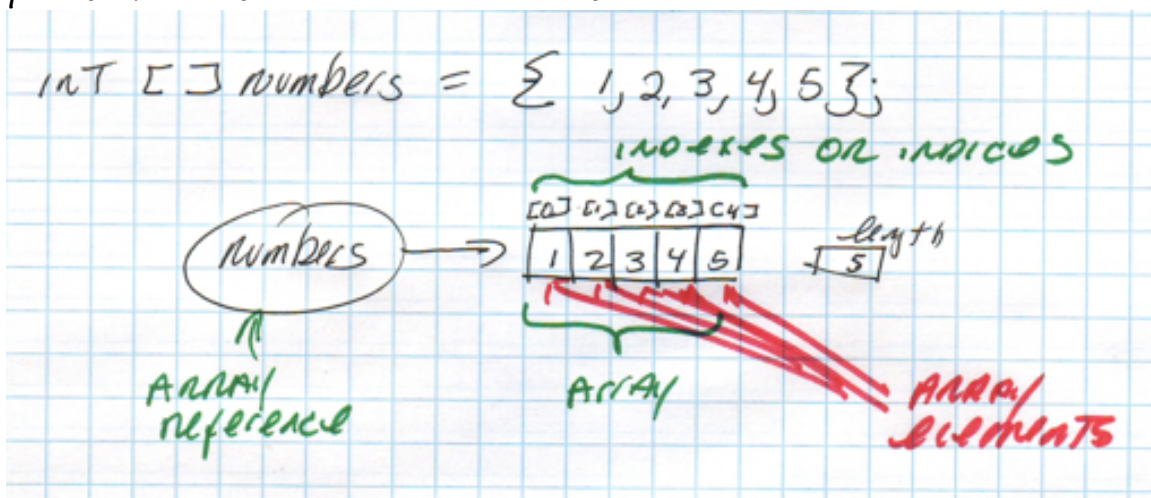 int [ ] numbers = { 1, 2, 3, 4, 5 };
indexes or indices
[0] [1] [2] [3] [4]
length
numbers
1 2 3 4 5
5
Array
reference
Array
Array
elements